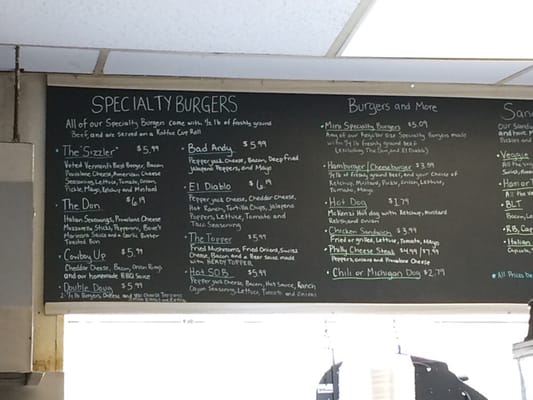 SPECIALTY BURGERS
All of our Specialty Burgers come with 1/2 lb of freshly ground
Beef, and are served on a Kaffee Cup Roll
• The "Sizzler" $5.99
Voted Vermont's Best Burger, Bacon
Provolone Cheese, American Cheese
Seasoning, Lettuce, Tomato, Onion,
Pickle, Mayo, Relish and Mustard
• The Don $6.19
Italian Seasonings, Provolone Cheese
Mozzarella Sticks, Pepperoni,
Marinara Sauce and a Garlic Butter
Toasted Bun
• Cowboy Up $5.99
Cheddar Cheese, Bacon, Onion Rings
and our homemade BBQ Sauce
• Double Doug $5.99
• Bad Andy $5.99
Pepper Jack Cheese, Bacon, Deep Fried
Jalapeno Peppers, and Mayo
• El Diablo $6.19
Pepper Jack Cheese, Cheddar Cheese,
Hot Ranch, Tortilla Chips, Jalapeno
Poppers, Lettuce, Tomato and
Taco Seasoning
• The Topper $5.99
Fried Mushrooms, Fried Onions, Swiss
Cheese, Bacon and a Beer Sauce made
with HEADY TOPPER
• Hot S.O.B. $5.99
Pepper Jack Cheese, Bacon, Hot Sauce, Ranch
Cajun Seasoning, Lettuce, Tomato and Onions
Burgers and More
• Mini Specialty Burgers $5.09
Any of our Regular Size Specialty Burgers made
with 1/4 lb of freshly ground beef
(excluding The Don, and El Diablo)
• Hamburger/Cheeseburger $3.99
1/4 lb of fresh ground beef, and your choice of
Ketchup, Mustard, Pickle, Onion, Lettuce,
Tomato, Mayo
• Hot Dog $1.79
McKenzi Hot dog with Ketchup, Mustard
Relish and Onion
• Chicken Sandwich $3.99
Fried or grilled, Lettuce, Tomato, Mayo
• Philly Cheese Steak $4.99/$7.99
Peppers, onions and Provolone Cheese
• Chili or Michigan Dog $2.79
Our
and have
Pickles and
• Veggie
All the
Swiss,
• Ham or
All the
• BLT
Bacon,
• RB,
• Italian
* All Prices